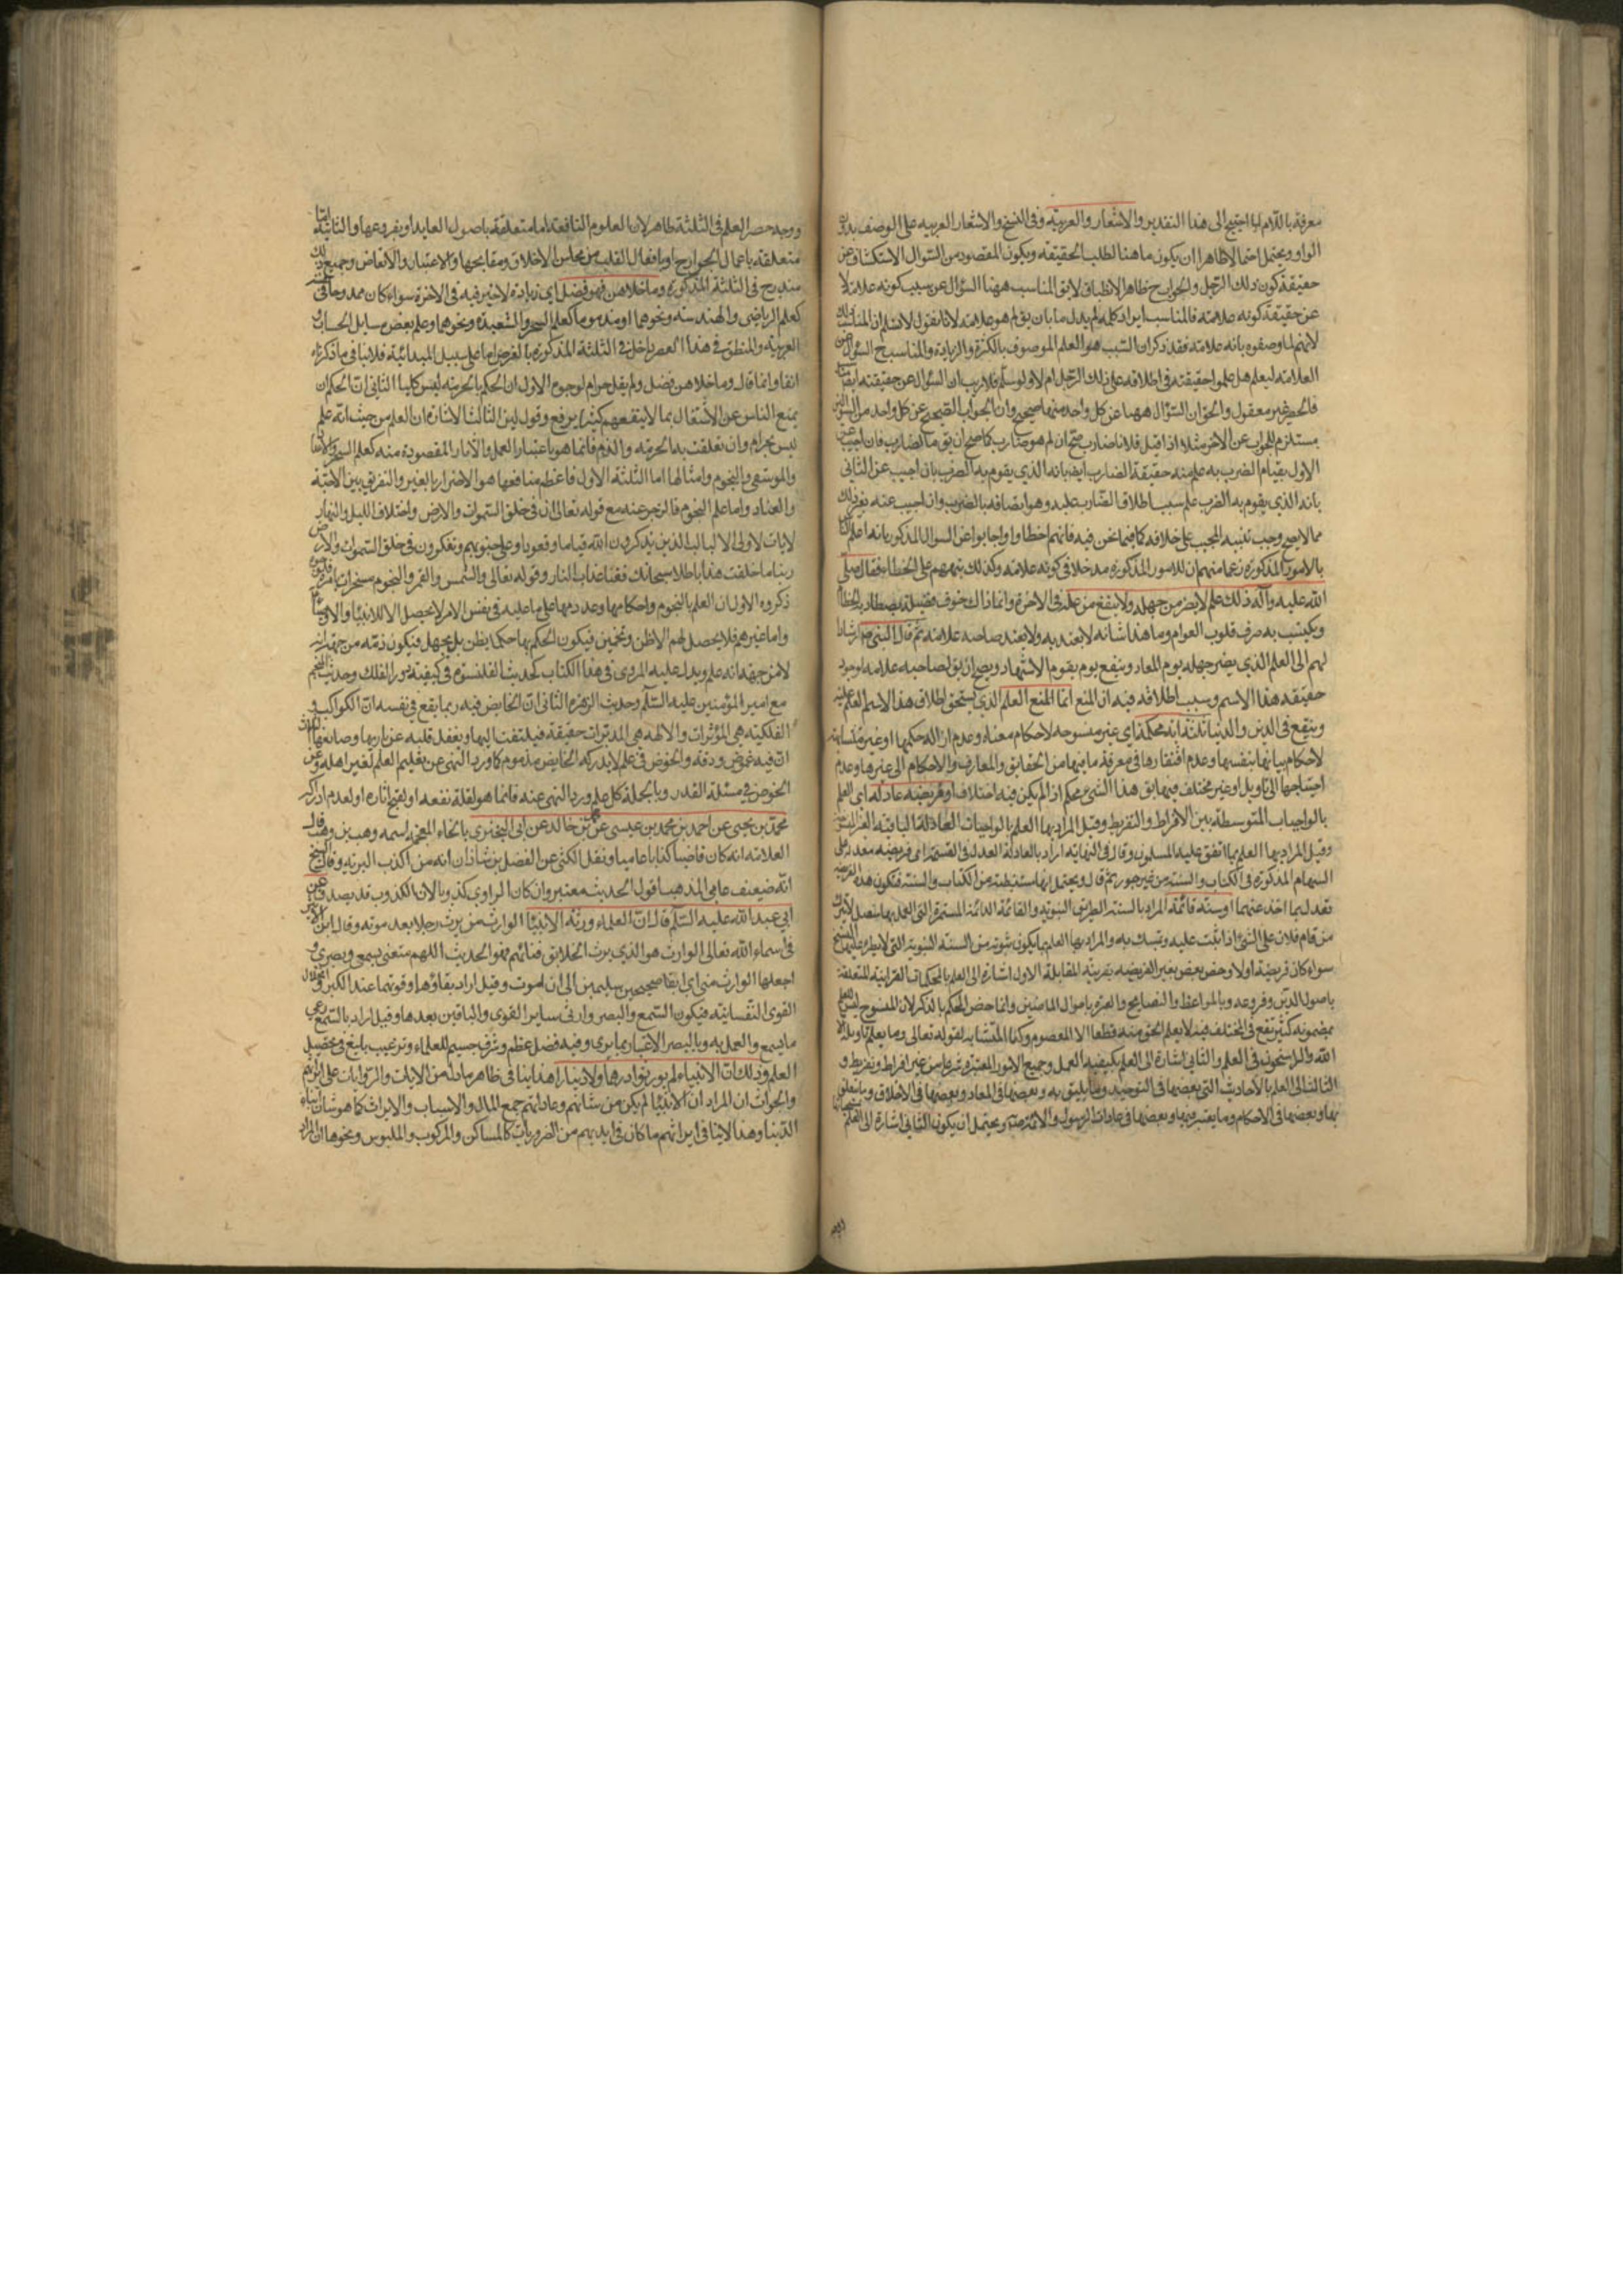 معرفة باللام لما احتيج الى هذا التقدير والاشعار والعربية وفي النسخ والاشعار العربية على الوصف بدون
الواو ويحتمل احتمالا ظاهرا ان يكون ما هنا لطلب الحقيقة ويكون المقصود من السؤال الاستكشاف عن
حقيقة كون ذلك الرجل والجواب ح ظاهر الانطباق لا يق المناسب ههنا السؤال عن سبب كونه علامة لا
عن حقيقة كونه علامة فالمناسب ايراد كلمة لم بدل ما بان يق لم هو علامة لانا نقول لا نسلم ان المناسب ذلك
لانهم لما وصفوه بانه علامة فقد ذكر ان السبب هو العلم الموصوف بالكثرة والزيادة والمناسب ح السؤال عن
العلامة ليعلم هل علموا حقيقته في اطلاقه على ذلك الرجل ام لا ولو سلم فلا ريب ان السؤال عن حقيقته ايضا
فالحصر غير معقول والحق ان السؤال ههنا عن كل واحد منهما صحيح وان الجواب الصحيح عن كل واحد من السؤالين
مستلزم للجواب عن الاخر مثلا اذا قيل فلانا ضارب صح ان لم هو ضارب كما صح ان يق ما الضارب فان اجيب عن
الاول بقيام الضرب به علم منه حقيقة الضارب ايضا بانه الذي يقوم به الضرب وان اجيب عن الثاني
بانه الذي يقوم به الضرب علم سبب اطلاق الضارب عليه وهو اتصافه بالضرب وان اجيب عنه بغير ذلك
مما لا يصح وجب تنبيه المجيب على خلافه كما فيما نحن فيه فانهم اخطاوا واجابوا عن السؤال المذكور بانه اعلم الناس
بالامور المذكورة زعما منهم ان للامور المذكورة مدخلا في كونه علامة ولذلك نبههم على الخطاء فقال صلى
الله عليه وآله ذلك علم لا يضر من جهله ولا ينفع من علمه في الاخرة وانما ذاك
ويكتسب به صرف قلوب العوام وما هذا شانه لا يعتد به ولا يعد صاحبه علامة ثم قال النبي ص ارشادا
لهم الى العلم الذي يضر جهله يوم المعاد وينفع يوم يقوم الاشهاد ويصح ان يق لصاحبه علامة لوجود
حقيقة هذا الاسم وسبب اطلاقه فيه انما العلم الذي يستحق اطلاق هذا الاسم
وينفع في الدين والدنيا ثلثة اية محكمة اي غير منسوخة لاحكام معناه وعدم ازالة حكمها او غير متشابهة
لاحكام بيانها بنفسها وعدم افتقارها في معرفة ما فيها من الحقايق والمعارف والاحكام الى غيرها وعدم
احتياجها الى تاويل او غير مختلف فيها يق هذا الشيء محكم اذا لم يكن فيه اختلاف او فريضة عادلة اي العلم
بالواجبات المتوسطة بين الافراط والتفريط وقيل المراد بها العلم بالواجبات العادلة الباقية
وقيل المراد بها العلم بما اتفق عليه المسلمون وقال في النهاية اراد بالعادلة العدل في القسمة اي فريضة معدلة على
السهام المذكورة في الكتاب والسنة من غير جور ثم قال ويحتمل انها مستنبطة من الكتاب والسنة فتكون هذه الفريضة
تعدل بما اخذ عنهما او سنة قائمة المراد بالسنة الطريقة النبوية والقائمة الدائمة المستمرة التي العمل بها متصل لا يترك
من قام فلان على الشئ اذا ثبت عليه وتمسك به والمراد بها العلم بما يكون ثبوته من السنة النبوية التي لا يطرء عليها النسخ
سواء كان فريضة اولا وخص بعض بغير الفريضة بقرينة المقابلة الاول اشارة الى العلم بالمحكمات القرانية المتعلقة
باصول الدين وفروعه وبالمواعظ والنصايح والعبرة باحوال الماضيين وانما خص المحكم بالذكر لان المنسوخ ليس العلم
بمضمونه كثير نفع في المختلف فيه لا يعلم الحق منه قطعا الا المعصوم وكذا المتشابه لقوله تعالى وما يعلم تاويله الا
الله والراسخون في العلم والثاني اشارة الى العلم بكيفية العمل وجميع الامور المعتبرة شرعا من غير افراط وتفريط و
الثالث الى العلم بالاحاديث التي بعضها في التوحيد وما يليق به وبعضها في المعاد وبعضها في الاخلاق وما يتعلق
بها وبعضها في الاحكام وما يعتبر فيها وبعضها في عادات الرسول والائمة ويحتمل ان يكون الثاني اشارة الى العلم
ووجه حصر العلم في الثلثة ظاهر لان العلوم النافعة اما متعلقة باصول العقايد او بفروعها والثانية اما
متعلقة باعمال الجوارح او بافعال القلب من محاسن الاخلاق ومقابحها والاعتبار والاتعاظ وجميع ذلك
مندرج في الثلثة المذكورة وما خلاهن فهو فضل اي زيادة لا خير فيه في الاخرة سواء كان ممدوحا في نفسه
كعلم الرياضي والهندسة ونحوهما او مذموما كعلم السحر والشعبدة ونحوها وعلم بعض مسايل الحساب و
العربية والمنطق في هذا العصر داخل في الثلثة المذكورة بالغرض اما على سبيل المبدائية فلا ينافي ما ذكرناه
انفا وانما قال وما خلاهن فضل ولم يقل حرام لوجوه الاول ان الحكم بالحرمة ليس كليا الثاني ان الحكم ان
يمنع الناس عن الاشتغال بما لا ينفعهم كثيرا برفع وقول لين الثالث الاشارة ان العلم من حيث انه علم
ليس بحرام وان تعلقت به الحرمة والذم فانما هو باعتبار العمل والآثار المقصودة منه كعلم السحر
والموسقى والنجوم وامثالها اما الثلثة الاول فاعظم منافعها هو الاضرار بالغير والتفريق بين الاحبة
والعناد واما علم النجوم فالزجر عنه مع قوله تعالى ان في خلق السموات والارض واختلاف الليل والنهار
لايات لاولي الالباب الذين يذكرون الله قياما وقعودا وعلى جنوبهم ويتفكرون في خلق السموات والارض
ربنا ما خلقت هذا باطلا سبحانك فقنا عذاب النار وقوله تعالى والشمس والقمر والنجوم مسخرات بامره
ذكروه الاول ان العلم بالنجوم واحكامها وعددها على ما عليه في نفس الامر لا يحصل الا للانبياء والاوصياء
واما غيرهم فلا يحصل لهم الا ظن وتخمين فيكون الحكم بها حكما بظن بل بجهل فيكون ذمه من جهة انه
لا من جهة انه علم ويدل عليه المروي في هذا الكتاب كحديث القلنسوة في كيفية دور الفلك وحديث المنجم
مع امير المؤمنين عليه السلم وحديث الزهرة الثاني ان الخايض فيه ربما يقع في نفسه ان الكواكب و
الفلكية هي المؤثرات والالهة هي المدبرات حقيقة فيلتفت اليها ويغفل قلبه عن باريها وصانعها الثالث
ان فيه غموض ودقة والخوض في علم لا يدركه الخايض مذموم كما ورد النهي عن تعليم العلم لغير اهله وعن
الخوض في مسئلة القدر وبالجملة كل علم ورد النهي عنه فانما هو لقلة نفعه او لقبح اثاره او لعدم ادراكه
محمد بن يحيى عن احمد بن محمد بن عيسى عن محمد بن خالد عن ابي البختري بالخاء المعجمة اسمه وهب بن وهب قال
العلامة انه كان قاضيا كذابا عاميا ونقل الكشي عن الفضل بن شاذان انه من اكذب البرية وقال الشيخ
انه ضعيف عامي المذهب اقول الحديث معتبر وان كان الراوي كذوبا لان الكذوب قد يصدق عن
ابي عبد الله عليه السلم قال ان العلماء ورثة الانبياء الوارث من يرث رجلا بعد موته وقال ابن الاثير
في اسماء الله تعالى الوارث هو الذي يرث الخلايق فنائهم وفي الحديث اللهم متعني بسمعي وبصري و
اجعلهما الوارث مني اي ابقهما صحيحين سليمين الى ان اموت وقيل اراد بقاؤهما وقوتهما عند الكبر وانحلال
القوى النفسانية فيكون السمع والبصر وارثي ساير القوى والباقين بعدها وقيل اراد بالسمع وعي
ما يسمع والعمل به وبالبصر الاعتبار بما يرى وفيه فضل عظيم وشرف جسيم للعلماء وترغيب بليغ في تحصيل
العلم وذلك ان الانبياء لم يورثوا درهما ولا دينارا هذا ينافي ظاهر ما دل من الايات والروايات على ارثهم
والجواب ان المراد ان الانبياء لم يكن من شانهم وعادتهم جمع المال والاسباب والايراث كما هو شان ابناء
الدنيا وهذا لا ينافي ايراثهم ما كان في ايديهم من الضروريات كالمساكن والمركوب والملبوس ونحوها